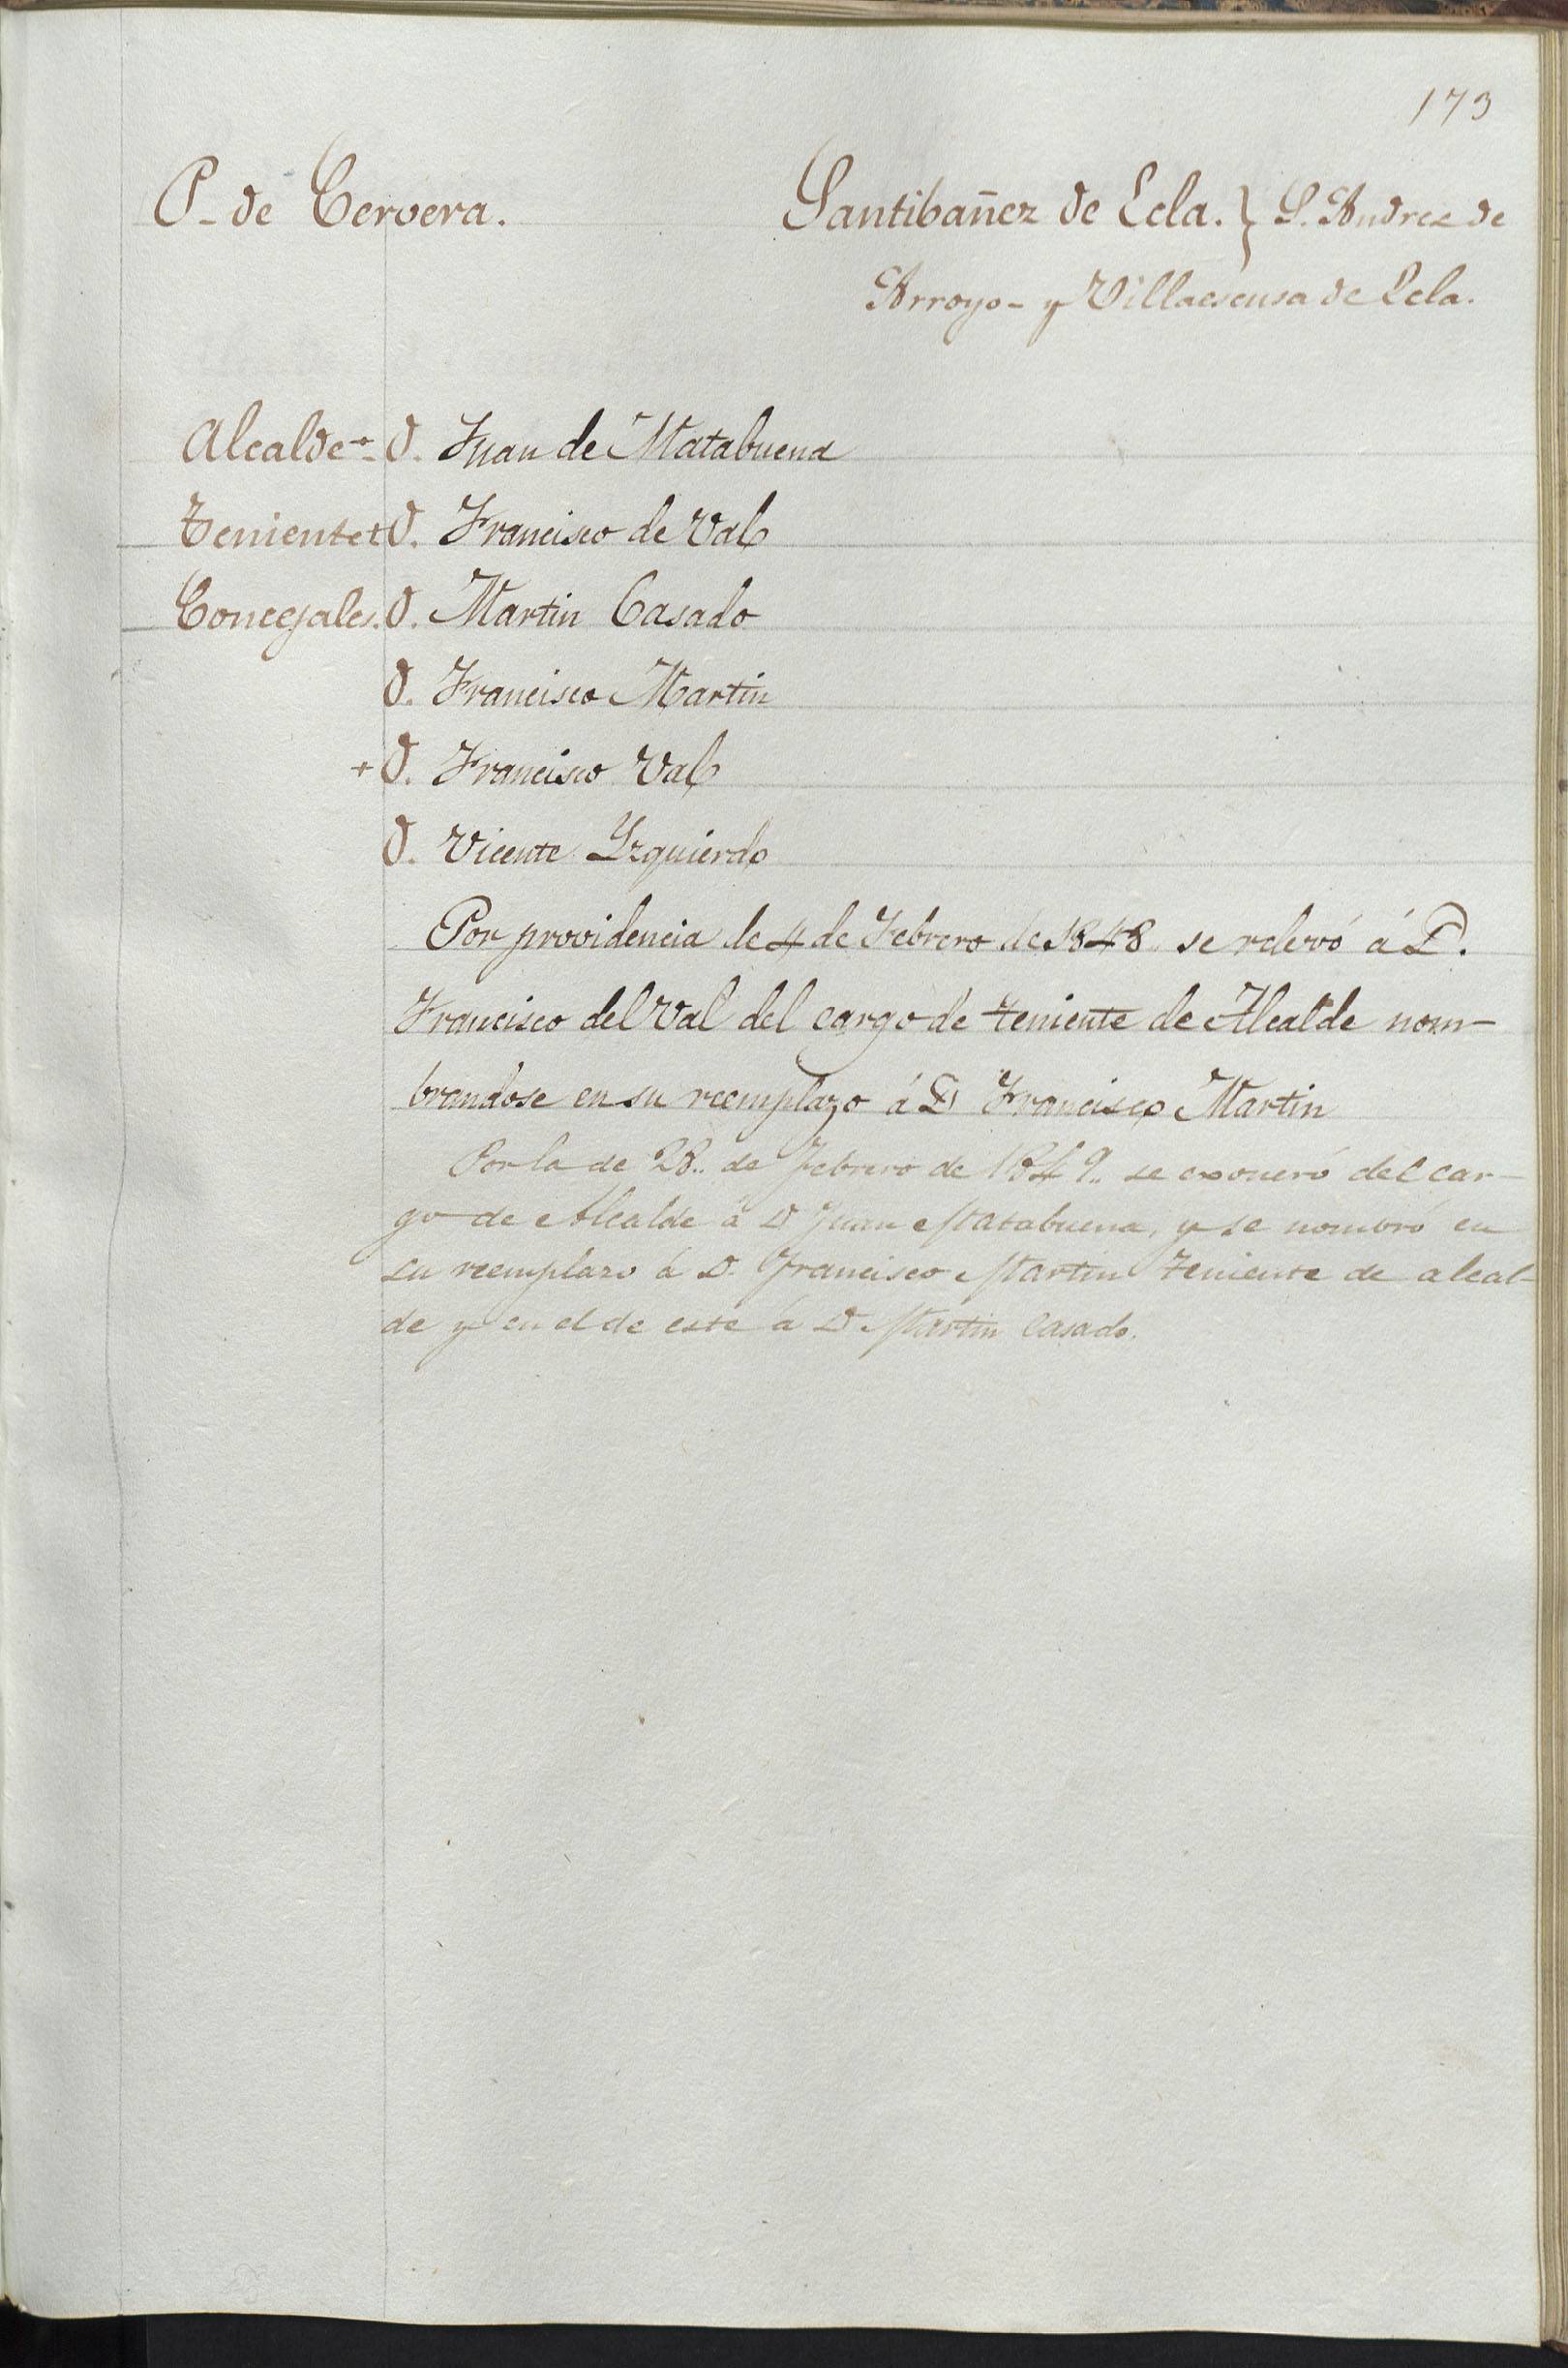 173
P. de Cervera.
Santibañez de Ecla. } S. Andres de
Arroyo - y Villaescusa de Ecla.
Alcalde + D. Juan de Matabuena
Teniente + D. Francisco de Val
Concejales. D. Martin Casado
D. Francisco Martin
+ D. Francisco Val
D. Vicente Yzquierdo
Por providencia de 4 de Febrero de 1848 se relevó á D.
Francisco del Val del cargo de teniente de Alcalde nom-
brandose en su reemplazo á D Francisco Martin
Por la de 28.. de Febrero de 1849.. se exoneró del car-
go de Alcalde á D Juan Matabuena, y se nombró en
su reemplazo á D. Francisco Martin Teniente de alcal-
de y en el de este á D Martin Casado.